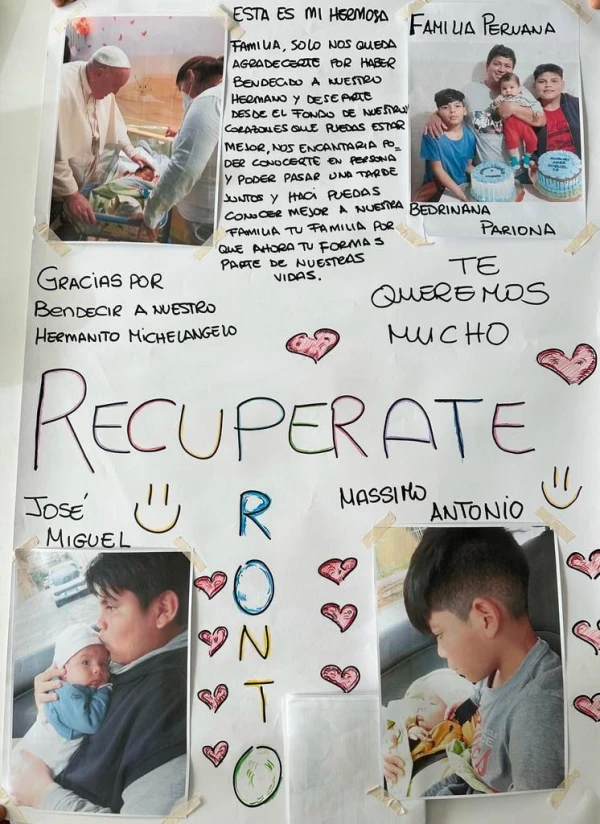 ESTA ES MI HERMOSA
FAMILIA, SOLO NOS QUEDA
AGRADECERTE POR HABER
BENDECIDO A NUESTRO
HERMANO Y DESEARTE
DESDE EL FONDO DE NUESTROS
CORAZONES QUE PUEDAS ESTAR
MEJOR, NOS ENCANTARIA PO=
DER CONOCERTE EN PERSONA
Y PODER PASAR UNA TARDE
JUNTOS Y HACI PUEDAS
CONOCER MEJOR A NUESTRA
FAMILIA TU FAMILIA POR
QUE AHORA TU FORMAS
PARTE DE NUESTRAS
VIDAS.
FAMILIA PERUANA
BEDRINANA
PARIONA
GRACIAS POR
BENDECIR A NUESTRO
HERMANITO MICHELANGELO
TE
QUEREMOS
MUCHO
RECUPERATE
RONTO
JOSÉ
MIGUEL
MASSIMO
ANTONIO